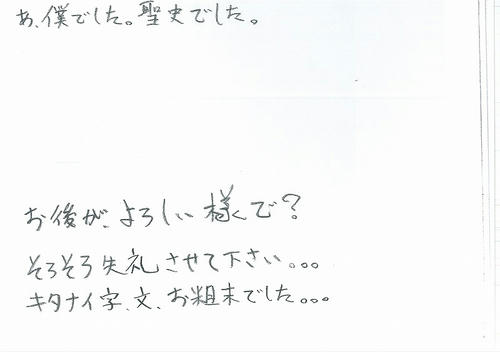 あ、僕でした。聖史でした。
お後が、よろしい様で?
そろそろ失礼させて下さい。。。
キタナイ字、文、お粗末でした。。。